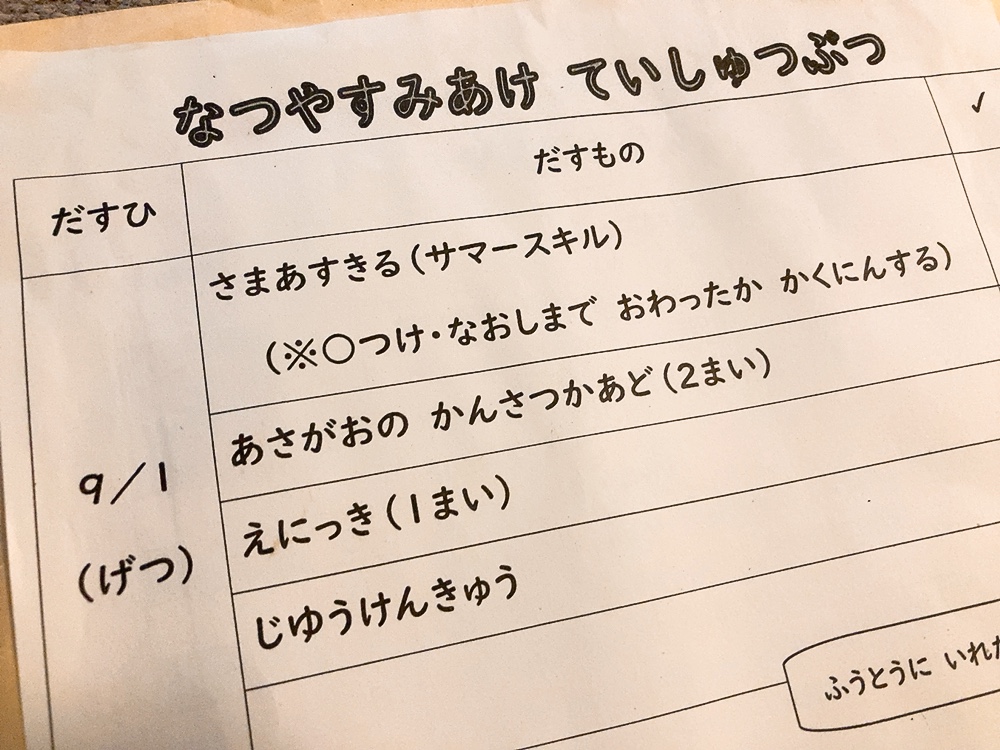 なつやすみあけ ていしゅつぶつ
だすひ
だすもの
✓
9/1
(げつ)
さまあすきる(サマースキル)
(※〇つけ・なおしまで おわったか かくにんする)
あさがおの かんさつかあど(2まい)
えにっき(1まい)
じゆうけんきゅう
ふうとうに いれ